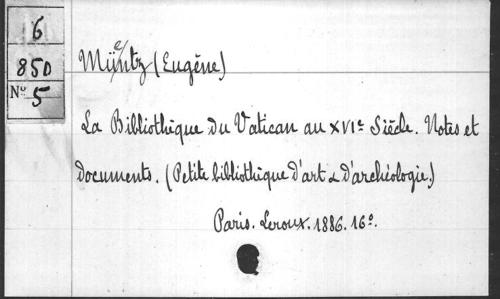 6
850
Nº 5
Müentz (Eugène)
La Bibliothèque du Vatican au XVIe Siècle. Notes et
documents. (Petite bibliothèque d'art & d'archéologie.)
Paris. Leroux. 1886. 16º.